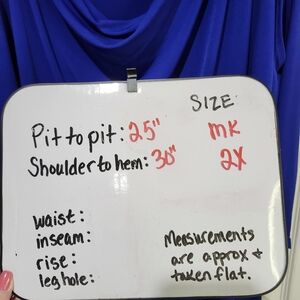 SIZE:
Pit to pit: 25" MK
Shoulder to hem: 30" 2X
waist:
inseam:
rise:
leghole:
Measurements
are approx &
taken flat.